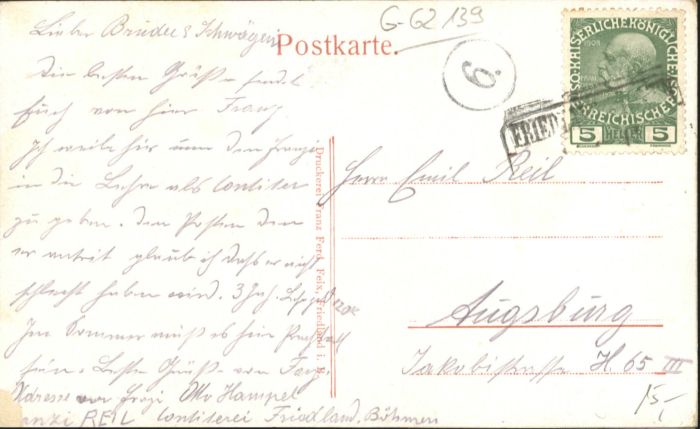 G-G2 139
Postkarte.
Lieber Bruder & Schwägerin
Die besten Grüße sendet
Euch von hier Franz
Ich weile hir um den Franzi
in die Lehre als Contiter
zu geben. Den Posten den
er antrit glaub ich daß er nicht
schlecht haben wird. 3 Jah.
Im Sommer muß es hir
sein. Beste Grüße von Franz
Adresse von Franzi Otto Hampel
anzi REIL Contiterei Friedland, Böhmen
Druckerei Franz Ferd. Feix, Friedland i. B.
9
KAISERLICHE KÖNIGLICHE
ÖSTERREICHISCHE POST
1908
5 HELLER 5
FRIED
Herrn Emil Reil
Augsburg
Jakobistrasse H. 65 III
15,-